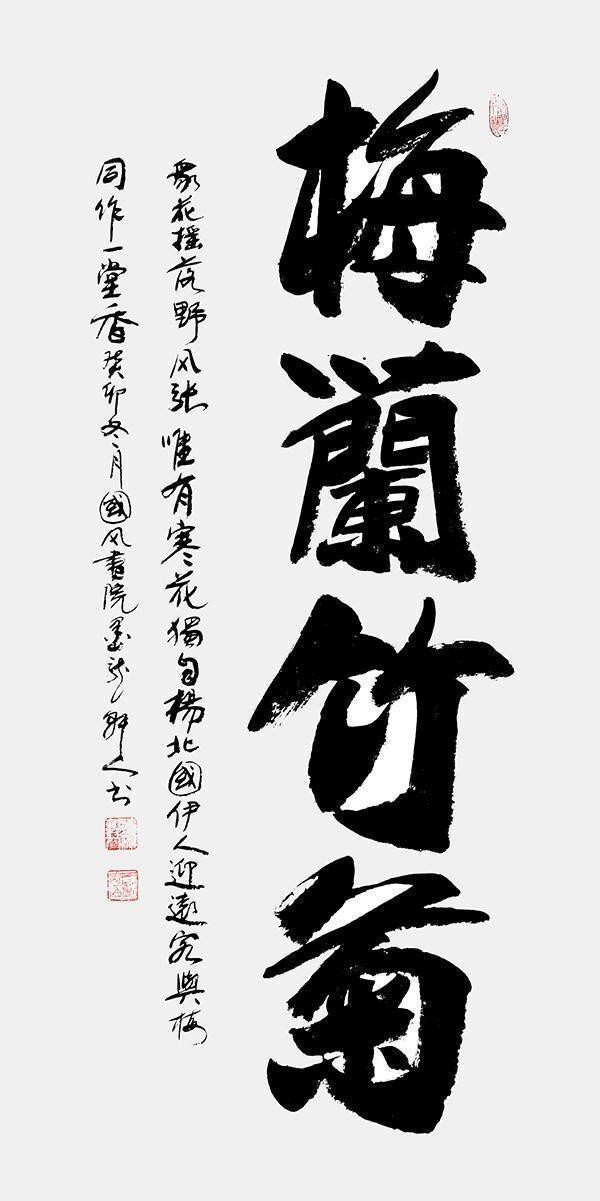 梅蘭竹菊
众花摇落野风张唯有寒花獨自楊北國伊人迎遠客與梅
同作一堂香癸卯冬月國风書院墨龙舒人书